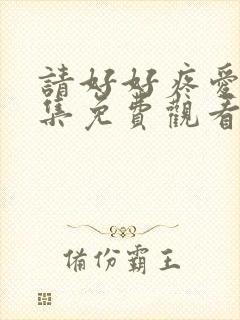 請好好疼愛
集免費觀看
備份霸王